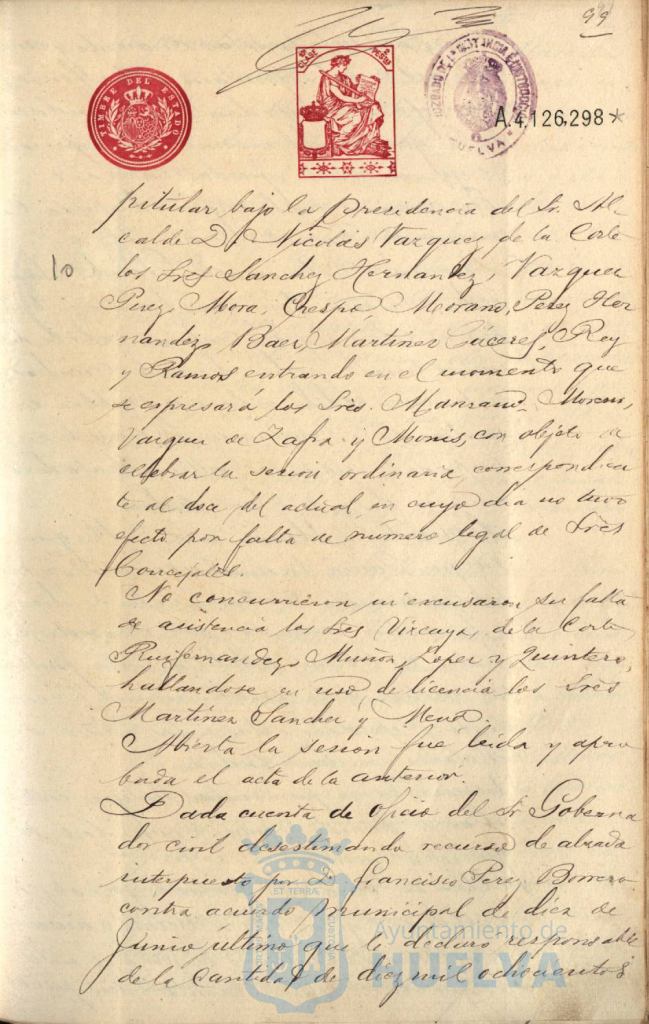 99
TIMBRE DEL ESTADO
10ª CLASE
PESETAS
HUELVA
A.4.126,298*
10
pitular bajo la Presidencia del Sr. Al-
calde D. Nicolás Vazquez de la Corte
los Sres Sanchez Hernandez, Vazquez
Perez, Mora, Crespo, Morano, Perez Her
nandez, Baer, Martinez Cáceres, Rey
y Ramos entrando en el momento que
se espresará los Sres. Manzano, Moreno,
Vazquez de Zafra y Monis, con objeto de
celebrar la sesion ordinaria, correspondien
te al doce del actual, en cuyo dia no tuvo
efecto por falta de número legal de Sres
Concejales.
No concurrieron ni excusaron su falta
de asistencia los Sres Vizcaya, de la Corte,
Ruifernandez, Muñoz, Lopez y Quintero,
hallandose en uso de licencia los Sres
Martinez Sanchez y
Abierta la sesion fué leida y apro
bada el acta de la anterior.
Dada cuenta de oficio del Sr Goberna
dor civil desestimando recurso de alzada
interpuesto por D. Francisco Perez Borrero
contra acuerdo municipal de diez de
Junio último que le declaró responsable
de la cantidad de diez mil ochocientos
Ayuntamiento de
HUELVA